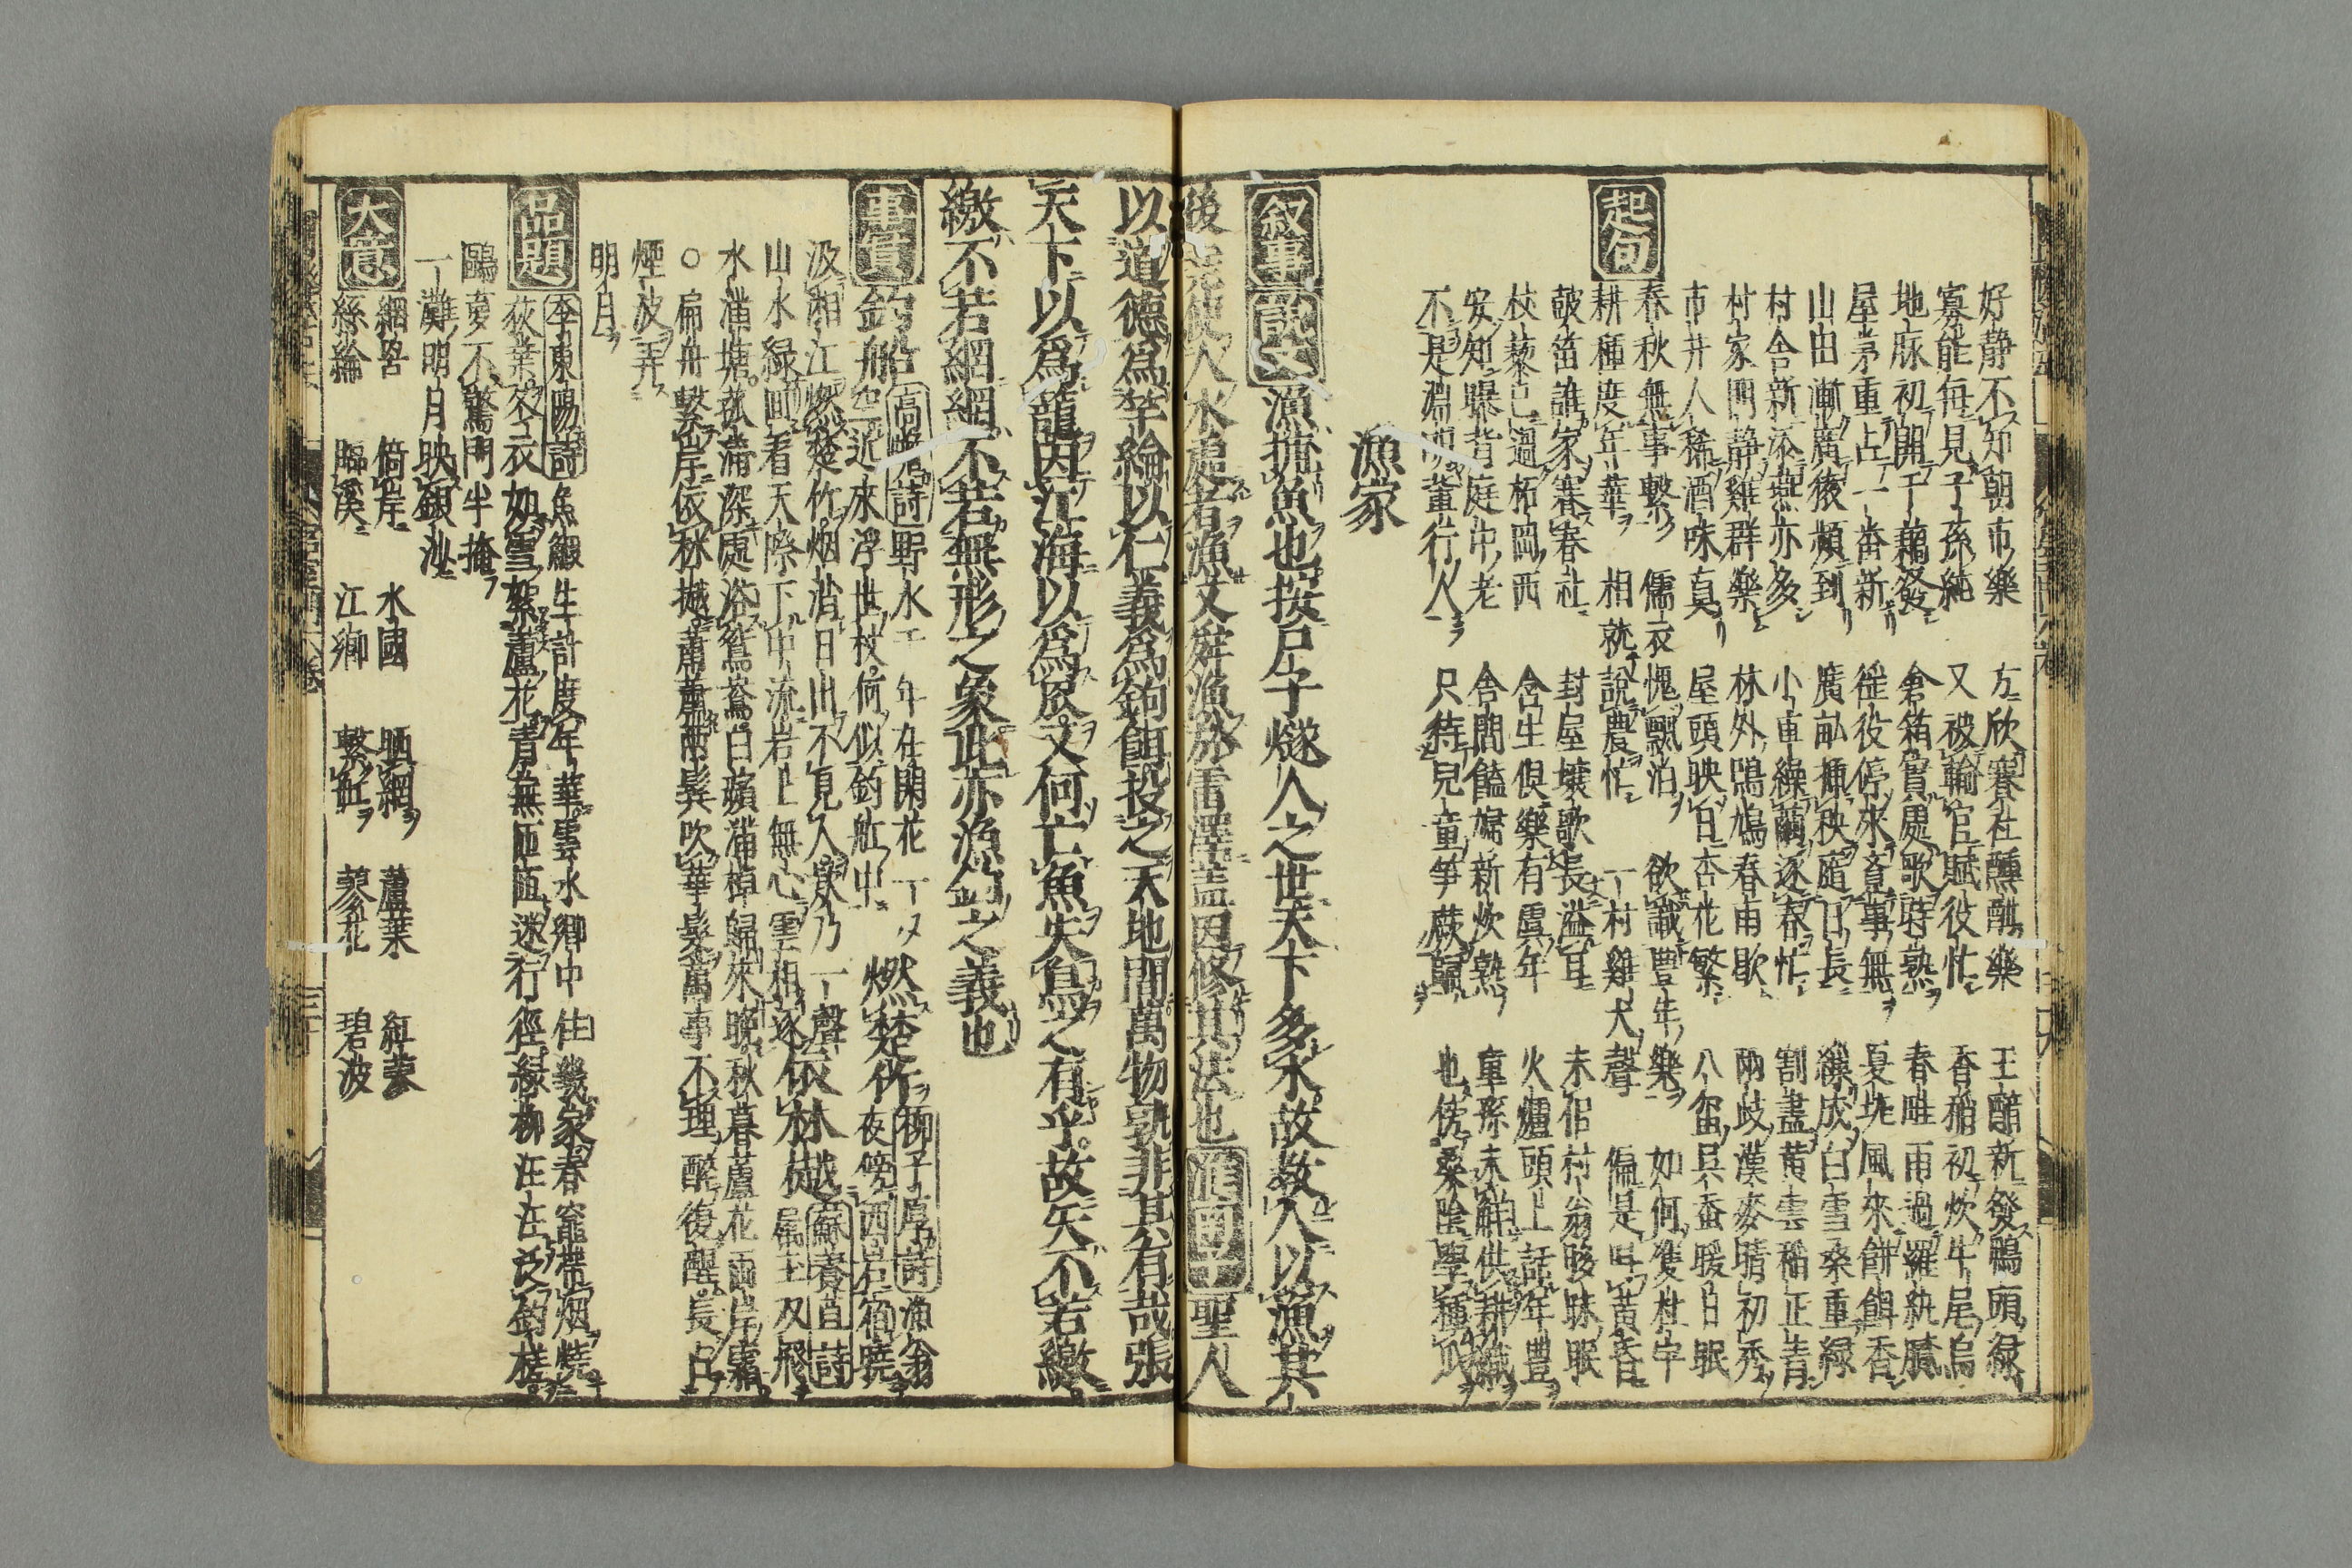 好静不知朝市樂 左欣賽社醺酣樂 王醅新發鴨頭綠
寡能毎見子孫純 又被輸官賦役忙 香稲初炊牛尾烏
地脉初開千耦發 倉箱貫處歌時熟 春畦雨過羅紈膩
屋茅重占一番新 徭役停來喜事無 夏壠風來餅餌香
山田漸廣猿頻到 廣畝挿秧隨日長 繰成白雪桑重綠
村舎新添燕亦多 小車繰繭逐春忙 割盡黄雲稲正青
村家門静雞群樂 林外鳴鳩春雨歇 兩歧漢麥晴初秀
市井人稀酒味真 屋頭映日杏花繁 八蚕呉蚕暖日眠
起句
春秋無事繋儒衣 愧飄泊 欲識豊年樂 如何隻杜宇
耕種度年華 相就說農忙 一村雞犬聲 偏是叫黄昏
皷笛誰家賽春社 封屋壤歌長溢耳 未俗村翁夥昧眠
杖藜已過柘岡西 含生俱樂有虞年 火爐頭上話年豊
安知曝背庭中老 舎間饁婦新炊熟 童孫未觧供耕織
不是淵明輩行人 只待兒童筍蕨歸 也傍桑陰學種瓜
漁家
叙事 說文 漁捕魚也按尸子燧人之世天下多水故教人以漁其
後 使人水處者漁又舜漁於雷澤蓋因修其法也 淮南子 聖人
以道德爲竿綸以仁義爲鉤餌投之天地間萬物孰非其有哉張
天下以爲籠因江海以爲罟又何亡魚失鳥之有乎故矢不若繳
繳不若網網不若無形之象此亦漁釣之義也
事實 釣船 高蟾詩 野水千年在閑花一夕空近來浮世狹何似釣船中 燃楚竹 柳子厚詩 漁翁夜傍西岩宿曉
汲湘江燃楚竹烟消日出不見人欸乃一聲
山水緑回看天際下中流岩上無心雲相逐 依林越 蘇養直詩 屬玉双飛
水滿塘菰蒲深處浴鴛鴦白蘋滿棹歸來晚秋暮蘆花兩岸霜
○扁舟繋岸依林樾蕭蕭兩鬂吹華髮萬事不理醉復醒長占
煙波弄
明月
品題 李東陽詩 魚鰕生計度年華雲水郷中住幾家春竈帶烟燒
荻葉冬衣如雪絮蘆花青無 迷行徑緑柳 泛釣槎
鷗夢不驚門半掩
一灘明月映銀沙
大意 網罟 倚岸 水國 晒網 蘆葉 紅蓼
絲綸 臨溪 江郷 繋缸 蓼花 碧波